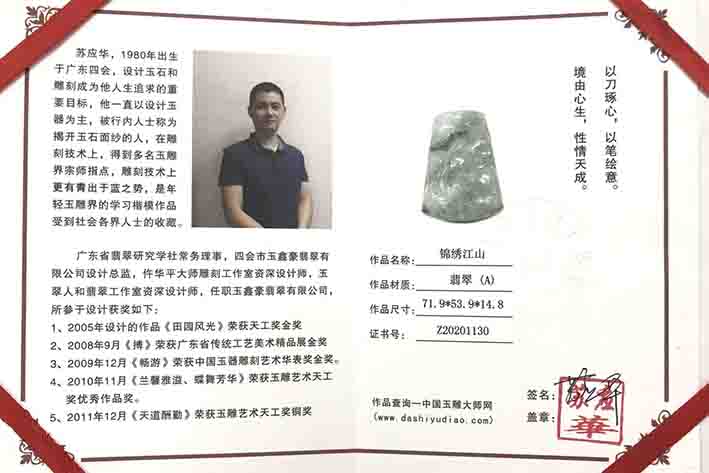 苏应华，1980年出生
于广东四会，设计玉石和
雕刻成为他人生追求的重
要目标，他一直以设计玉
器为主，被行内人士称为
揭开玉石面纱的人，在雕
刻技术上，得到多名玉雕
界宗师指点，雕刻技术上
更有青出于蓝之势，是年
轻玉雕界的学习楷模作品
受到社会各界人士的收藏。
广东省翡翠研究学社常务理事，四会市玉鑫豪翡翠有
限公司设计总监，仵华平大师雕刻工作室资深设计师，玉
翠人和翡翠工作室资深设计师，任职玉鑫豪翡翠有限公司，
所参于设计获奖如下：
1、2005年设计的作品《田园风光》荣获天工奖金奖
2、2008年9月《搏》荣获广东省传统工艺美术精品展金奖
3、2009年12月《畅游》荣获中国玉器雕刻艺术华表奖金奖。
4、2010年11月《兰馨雅溢、蝶舞芳华》荣获玉雕艺术天工
奖优秀作品奖。
5、2011年12月《天道酬勤》荣获玉雕艺术天工奖铜奖
以刀琢心，以笔绘意。
境由心生，性情天成。
作品名称：锦绣江山
作品材质：翡翠（A）
作品尺寸：71.9*53.9*14.8
证书号：Z20201130
作品查询一中国玉雕大师网
（www.dashiyudiao.com）
签名：
盖章：
華